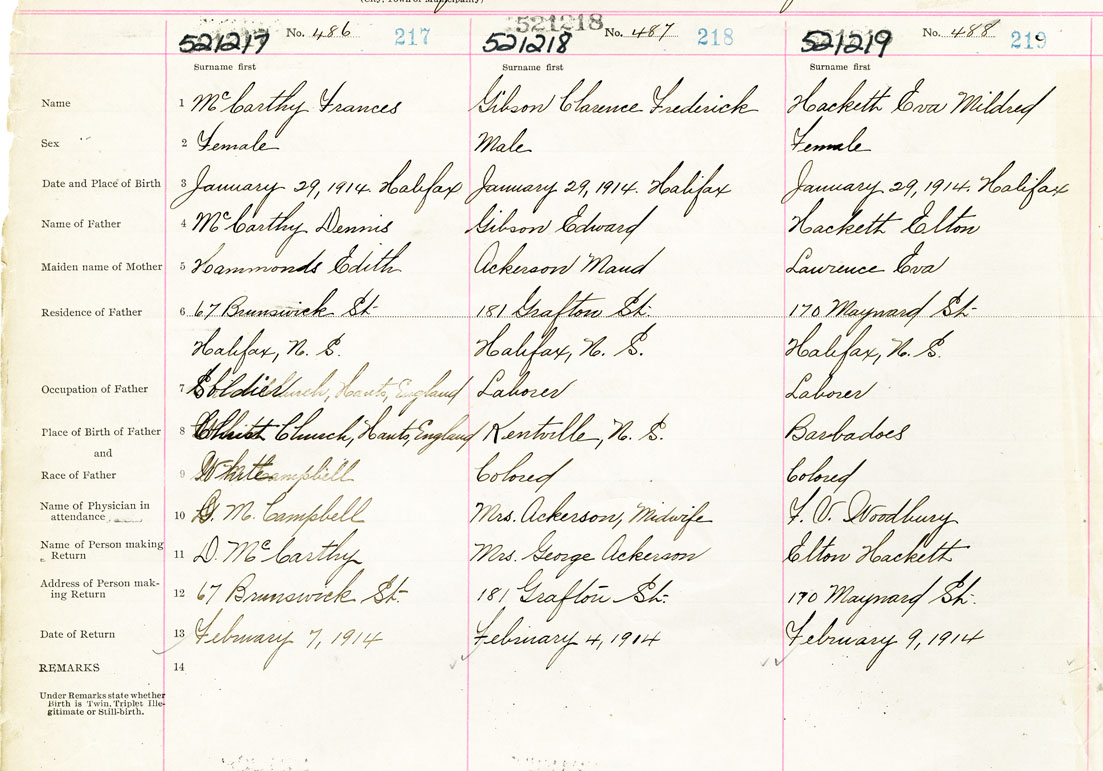 (City, Town or Municipality)
521218
521217 No. 486 217 521218 No. 487 218 521219 No. 488 219
Surname first Surname first Surname first
Name 1 McCarthy Frances Gibson Clarence Frederick Hackett Eva Mildred
Sex 2 Female Male Female
Date and Place of Birth 3 January 29, 1914. Halifax January 29, 1914. Halifax January 29, 1914. Halifax
Name of Father 4 McCarthy Dennis Gibson Edward Hackett Elton
Maiden name of Mother 5 Hammonds Edith Ackerson Maud Lawrence Eva
Residence of Father 6 67 Brunswick St. 181 Grafton St. 170 Maynard St.
Halifax, N. S. Halifax, N. S. Halifax, N. S.
Occupation of Father 7 Soldier Church, Hants, England Laborer Laborer
Place of Birth of Father 8 Christ Church, Hants, England Kentville, N. S. Barbadoes
and
Race of Father 9 White Campbell Colored Colored
Name of Physician in
attendance 10 G. M. Campbell Mrs. Ackerson, Midwife F. V. Woodbury
Name of Person making
Return 11 D. McCarthy Mrs. George Ackerson Elton Hackett
Address of Person mak-
ing Return 12 67 Brunswick St. 181 Grafton St. 170 Maynard St.
Date of Return 13 February 7, 1914 February 4, 1914 February 9, 1914
REMARKS 14
Under Remarks state whether
Birth is Twin, Triplet Ille-
gitimate or Still-birth.